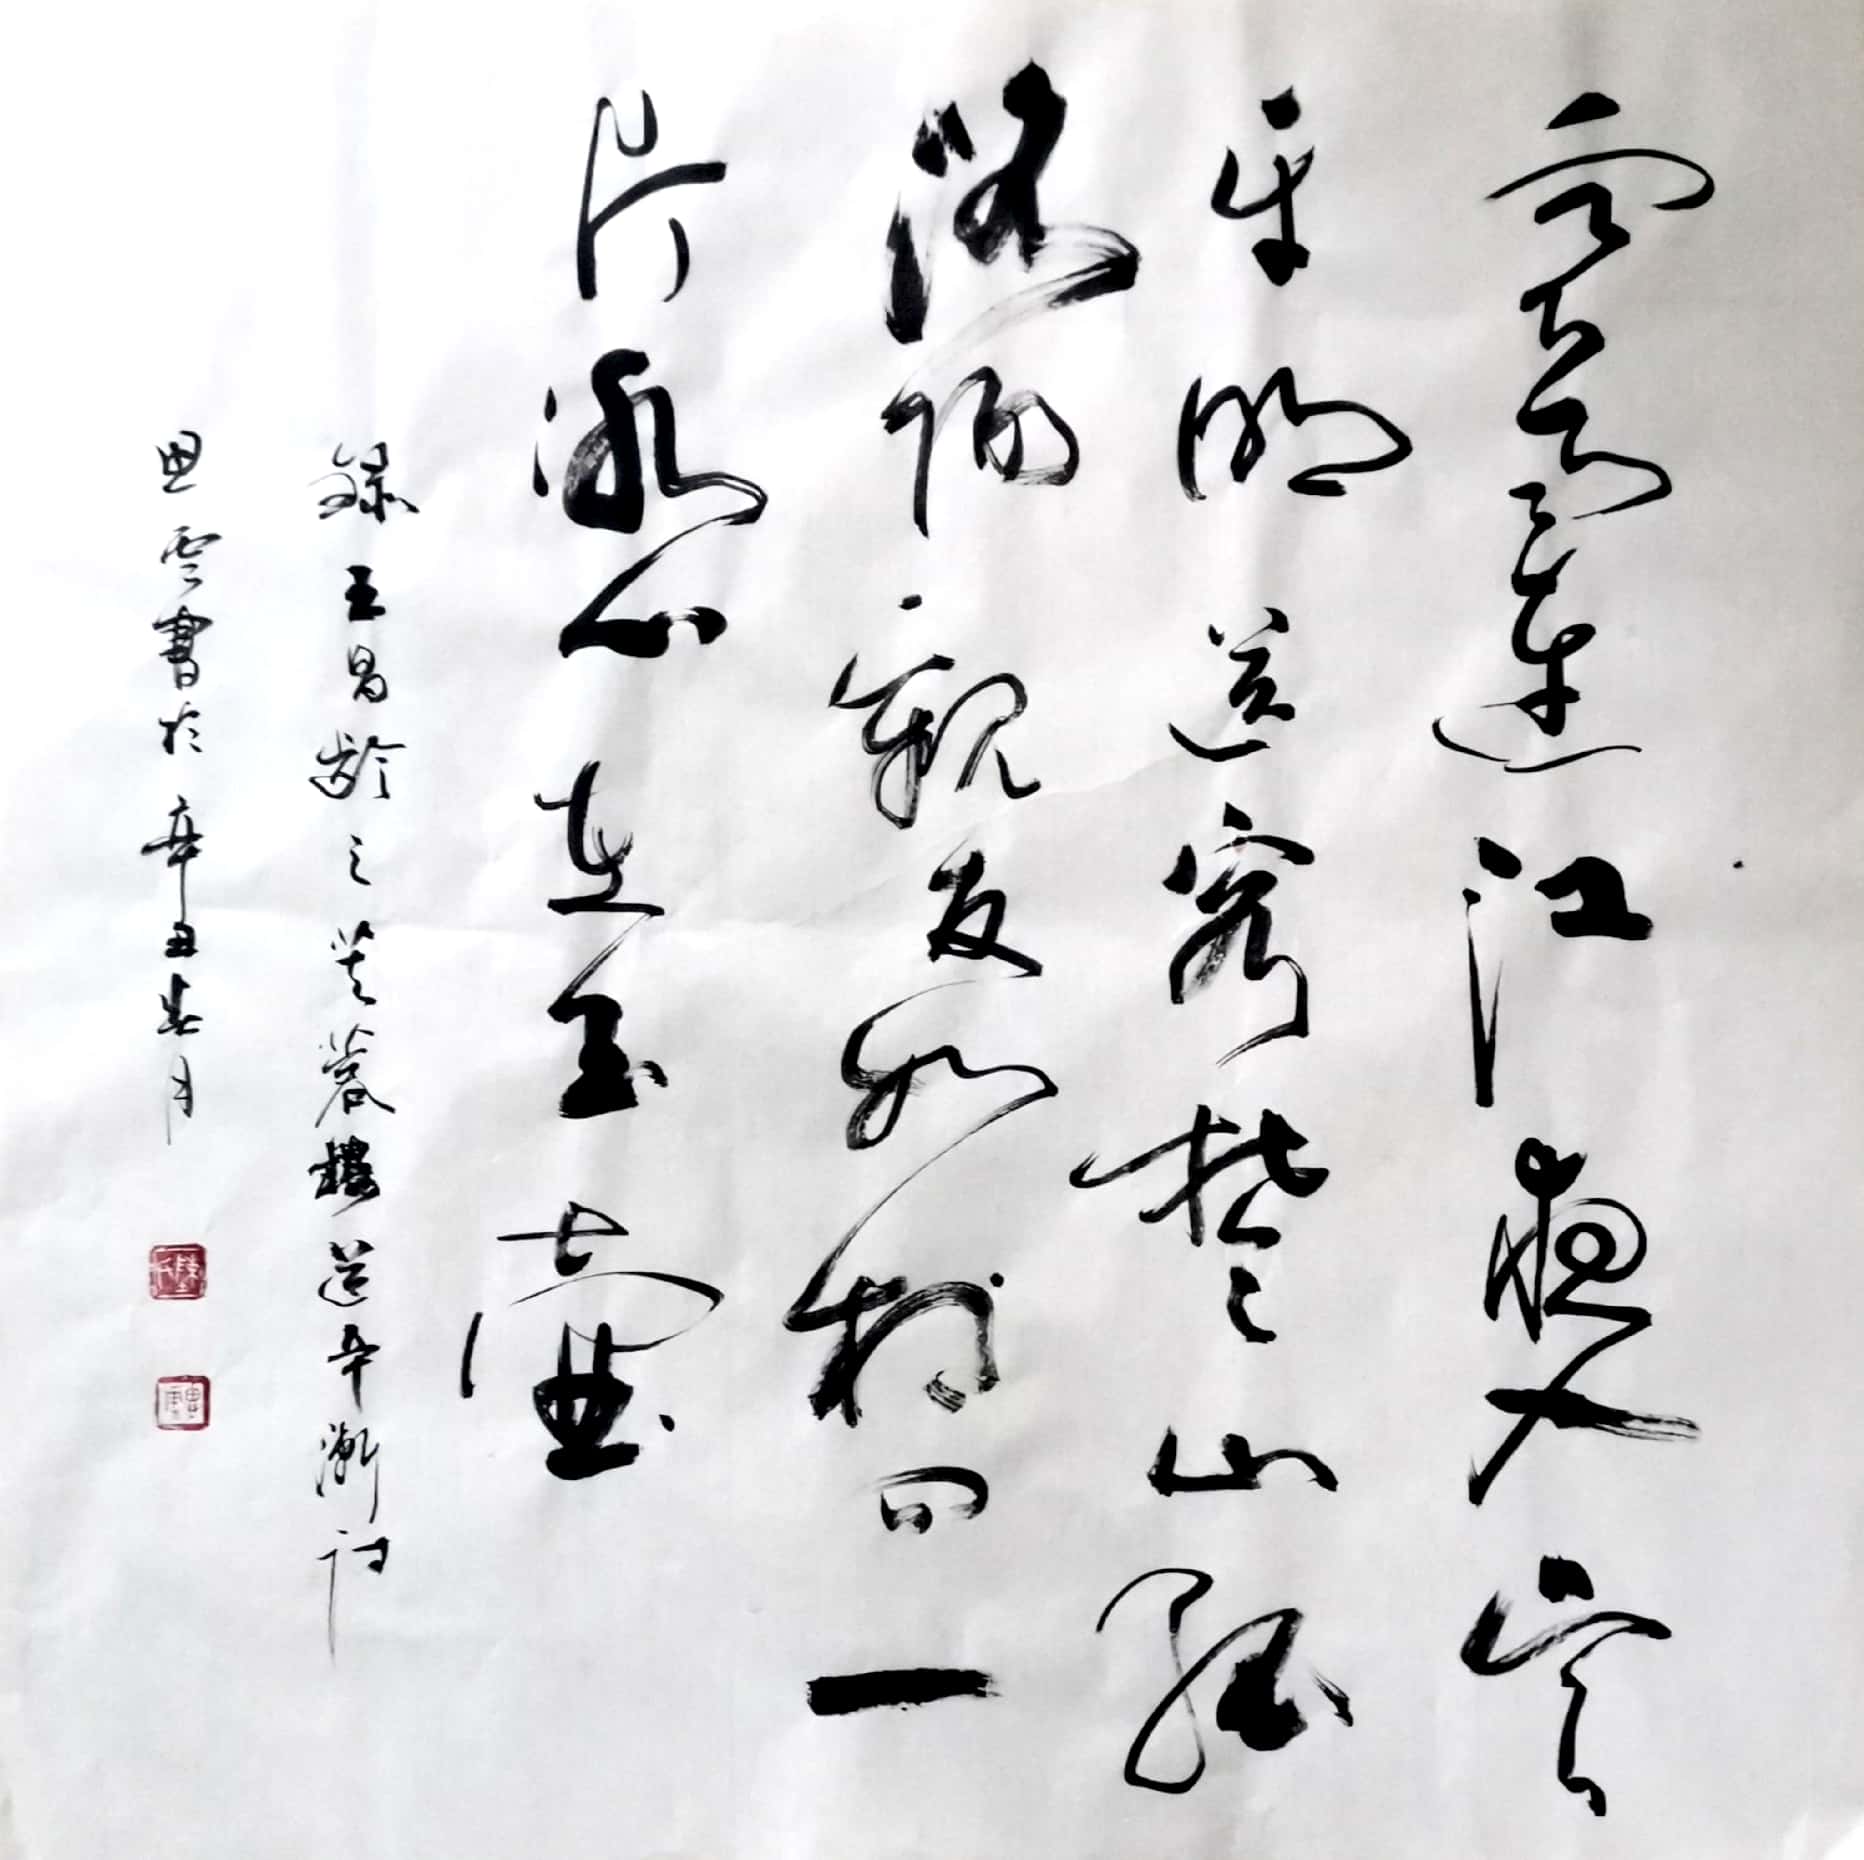 寒雨連江夜入吳
平明送客楚山孤
洛陽親友如相問一
片冰心在玉壺
錄王昌齡之芙蓉樓送辛漸詩
思雲書於辛丑春月
思雲